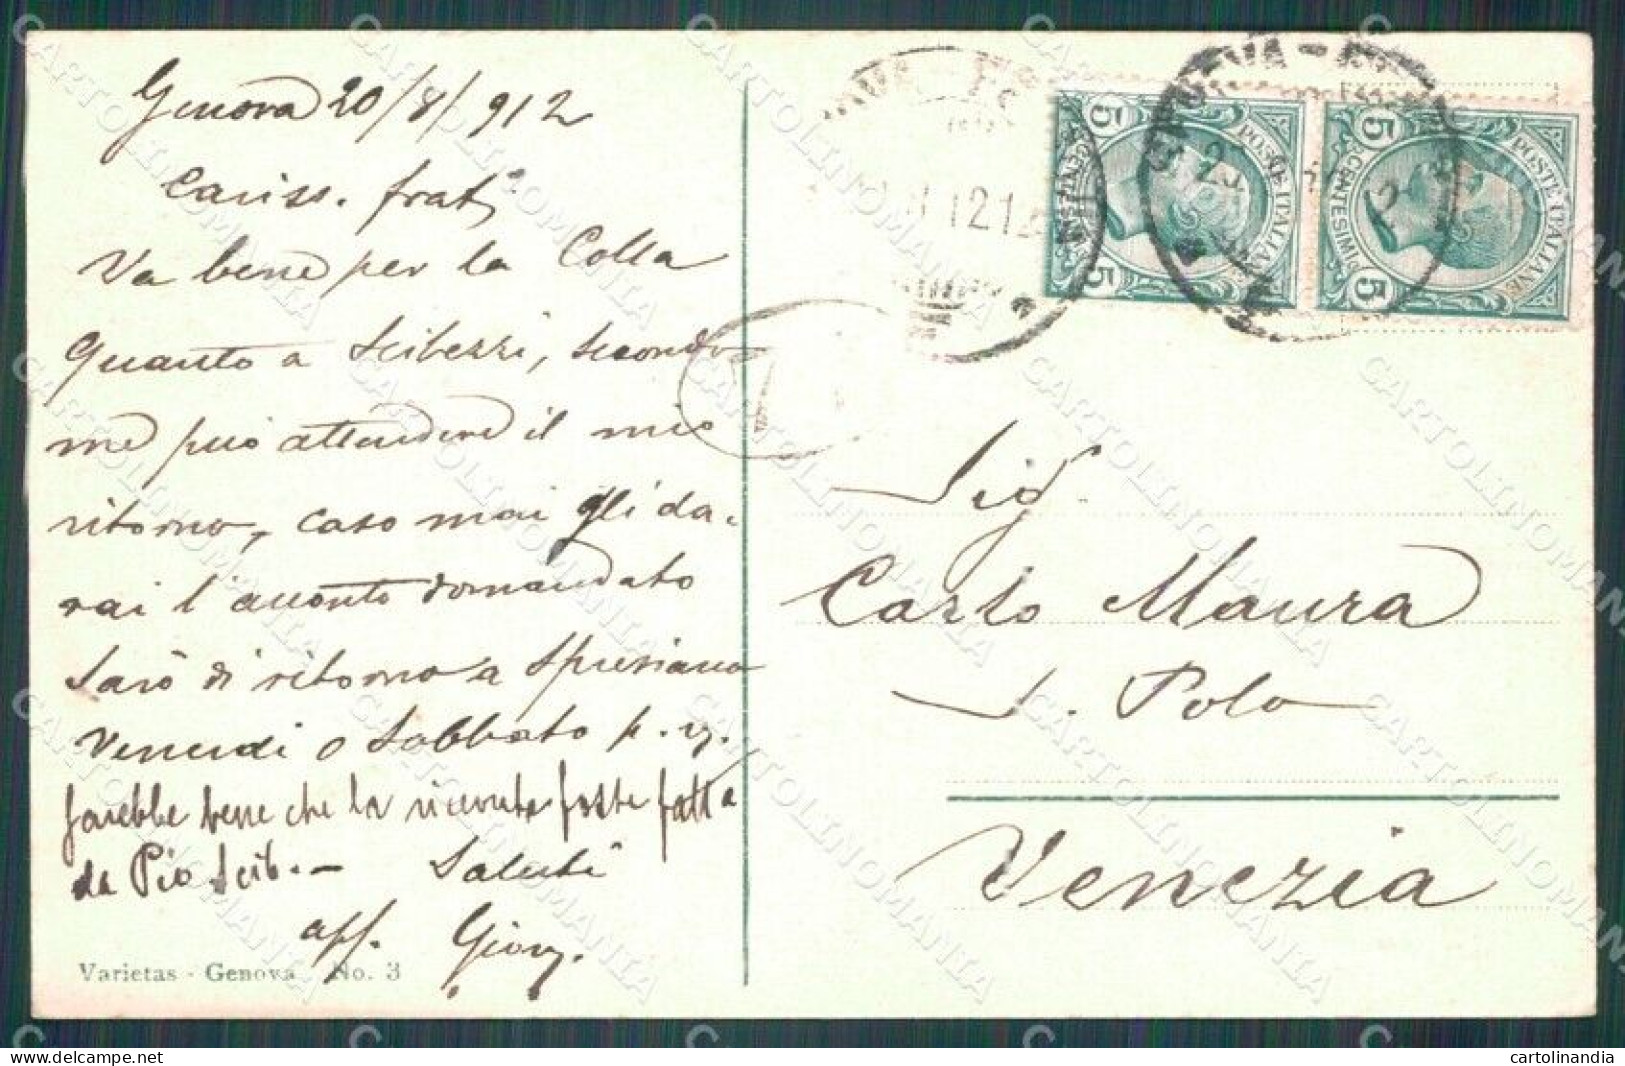 Genova 20/8/912
Cariss. frat.
Va bene per la Colla
Quanto a Scibezzi, secondo
me può attendere il mio
ritorno, caso mai gli da-
rai l'acconto domandato
Sarò di ritorno a Spresiano
Venerdi o Sabbato p. v.
farebbe bene che la ricevuta fosse fatta
da Pio Scib. — Saluti
aff. Giov.
Varietas - Genova No. 3
5 CENTESIMI 5
POSTE ITALIANE
5 CENTESIMI 5
POSTE ITALIANE
GENOVA
12 12
Sig.
Carlo Maura
S. Polo
Venezia
CARTOLINOMANIA
cartolinandia